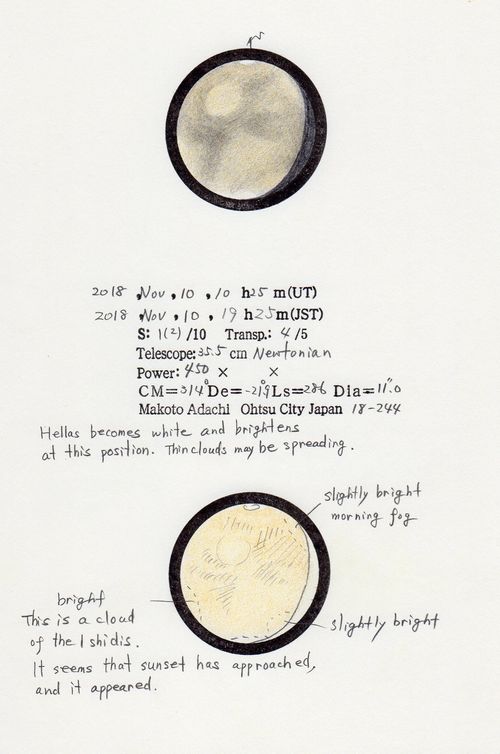 2018 Nov, 10, 10 h25 m(UT)
2018 Nov, 10, 19 h25m(JST)
S: 1(2)/10 Transp.: 4/5
Telescope: 35.5 cm Newtonian
Power: 450 × ×
CM=314° De=-21.9° Ls=286 Dia=11".0
Makoto Adachi Ohtsu City Japan 18-244
Hellas becomes white and brightens
at this position. Thin clouds may be spreading.
slightly bright
morning fog
bright
This is a cloud
of the Ishidis.
It seems that sunset has approached,
and it appeared.
slightly bright